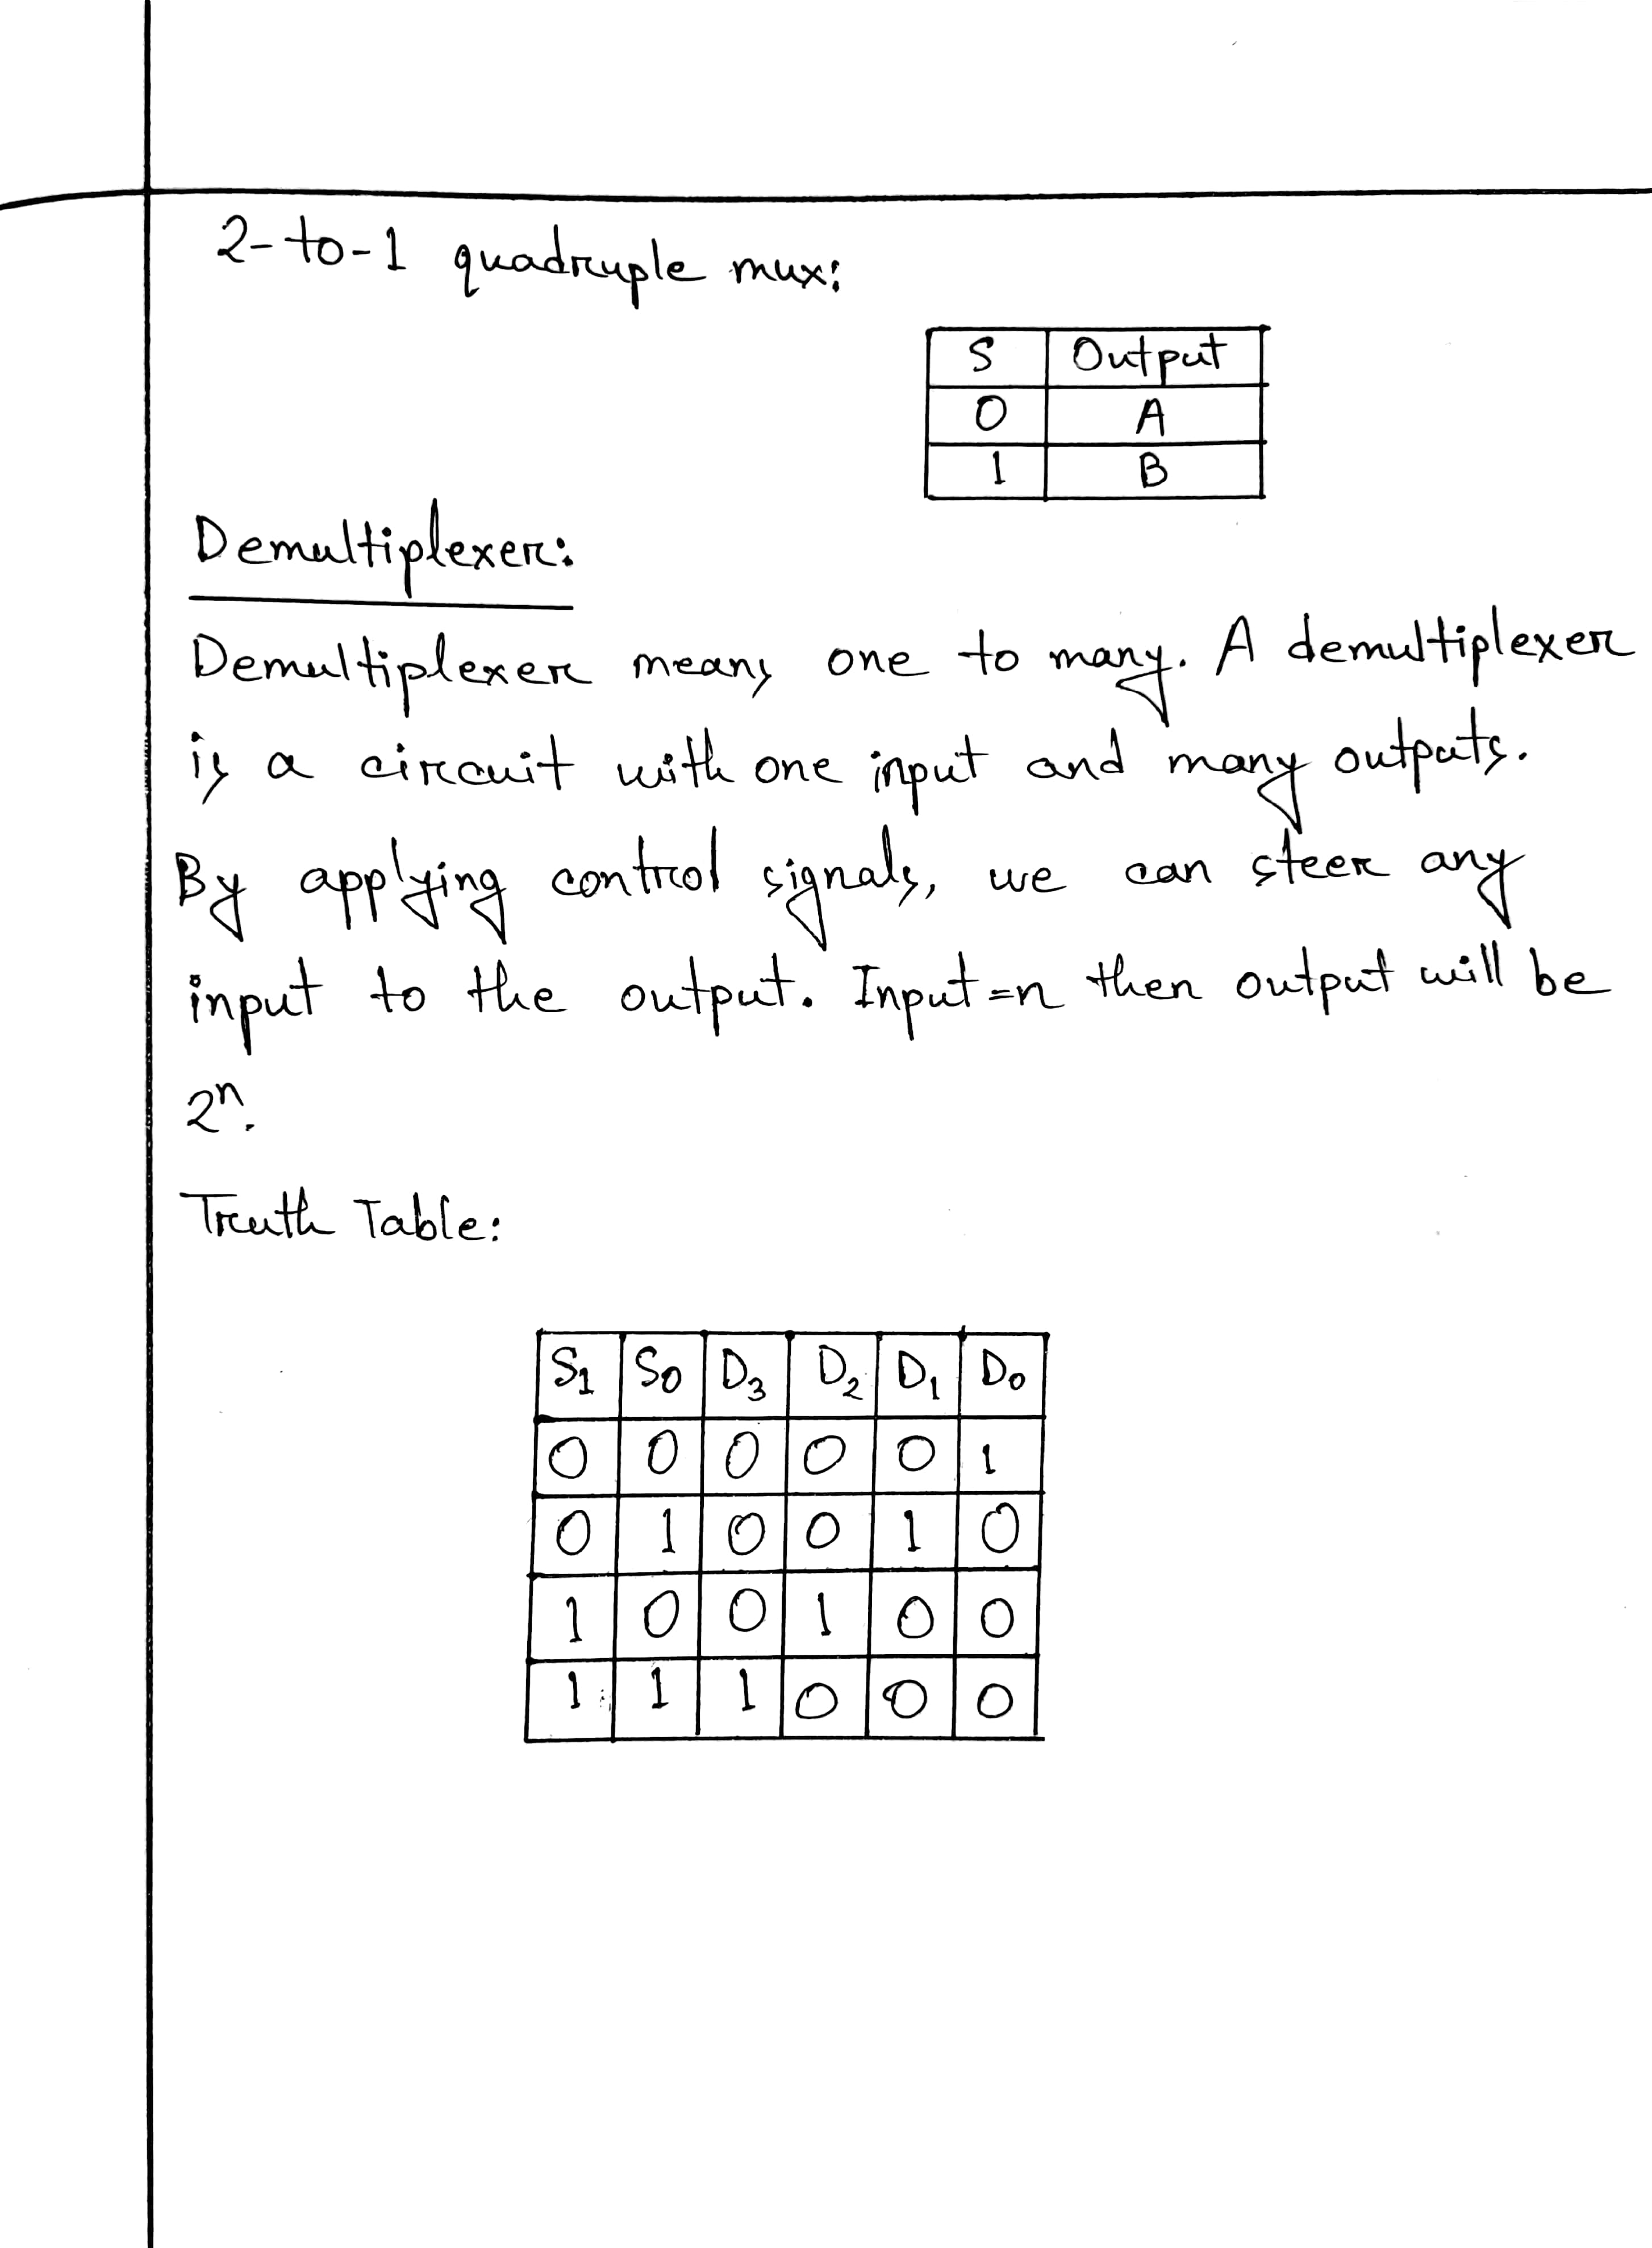 2-to-1 quadruple mux:
S Output
0 A
1 B
Demultiplexer:
Demultiplexer means one to many. A demultiplexer
is a circuit with one input and many outputs.
By applying control signals, we can steer any
input to the output. Input=n then output will be
2ⁿ.
Truth Table:
S₁ S₀ D₃ D₂ D₁ D₀
0 0 0 0 0 1
0 1 0 0 1 0
1 0 0 1 0 0
1 1 1 0 0 0